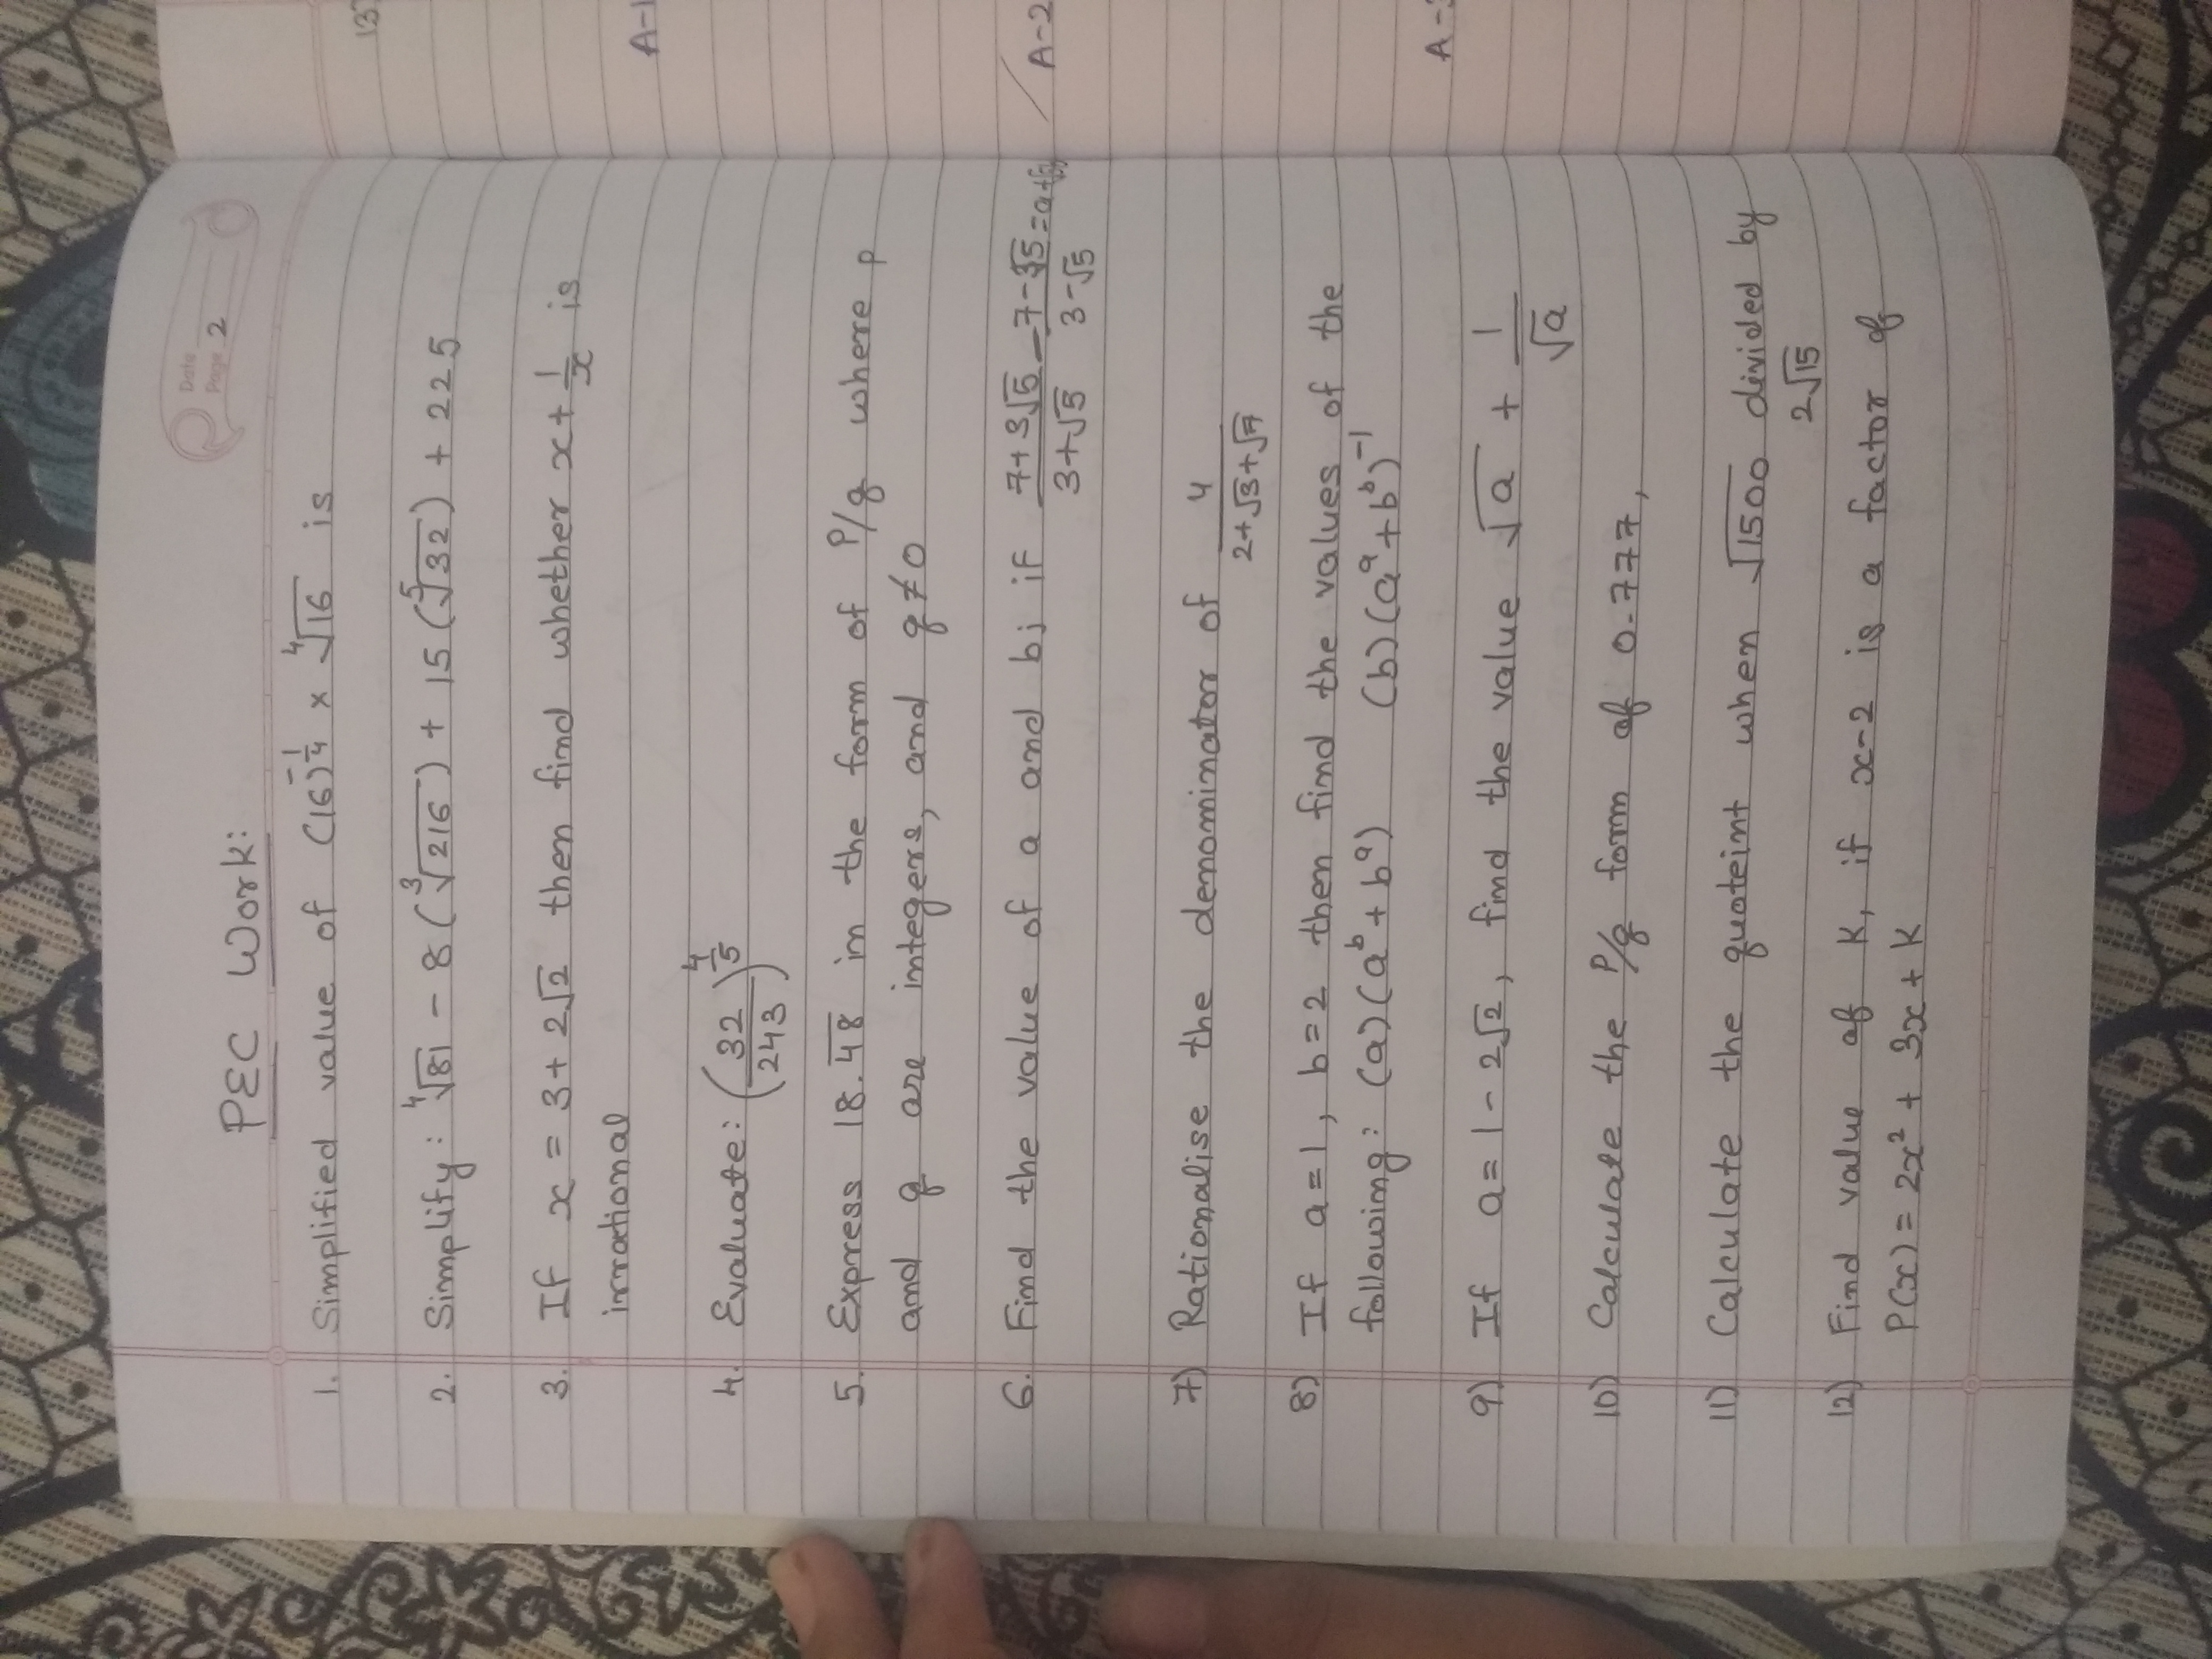 Date
Page 2
PEC Work:
1. Simplified value of (16)^-1/4 × ⁴√16 is
2. Simplify: ⁴√81 - 8(³√216) + 15(⁵√32) + 225
3. If x = 3+2√2 then find whether x + 1/x is
irrational
4. Evaluate: (32/243)^4/5
5. Express 18.4̅8̅ in the form of P/q where p
and q are integers, and q≠0
6. Find the value of a and b; if 7+3√5/3+√5 - 7-3√5/3-√5 = a+
7) Rationalise the denominator of 4/2+√3+√7
8) If a=1, b=2 then find the values of the
following: (a) (a^b + b^a) (b) (a^a + b^b)^-1
9) If a = 1-2√2, find the value √a + 1/√a
10) Calculate the P/q form of 0.777,
11) Calculate the quoteint when √1500 divided by
2√15
12) Find value of K, if x-2 is a factor of
P(x) = 2x² + 3x + K
137
A-1
A-2
A-